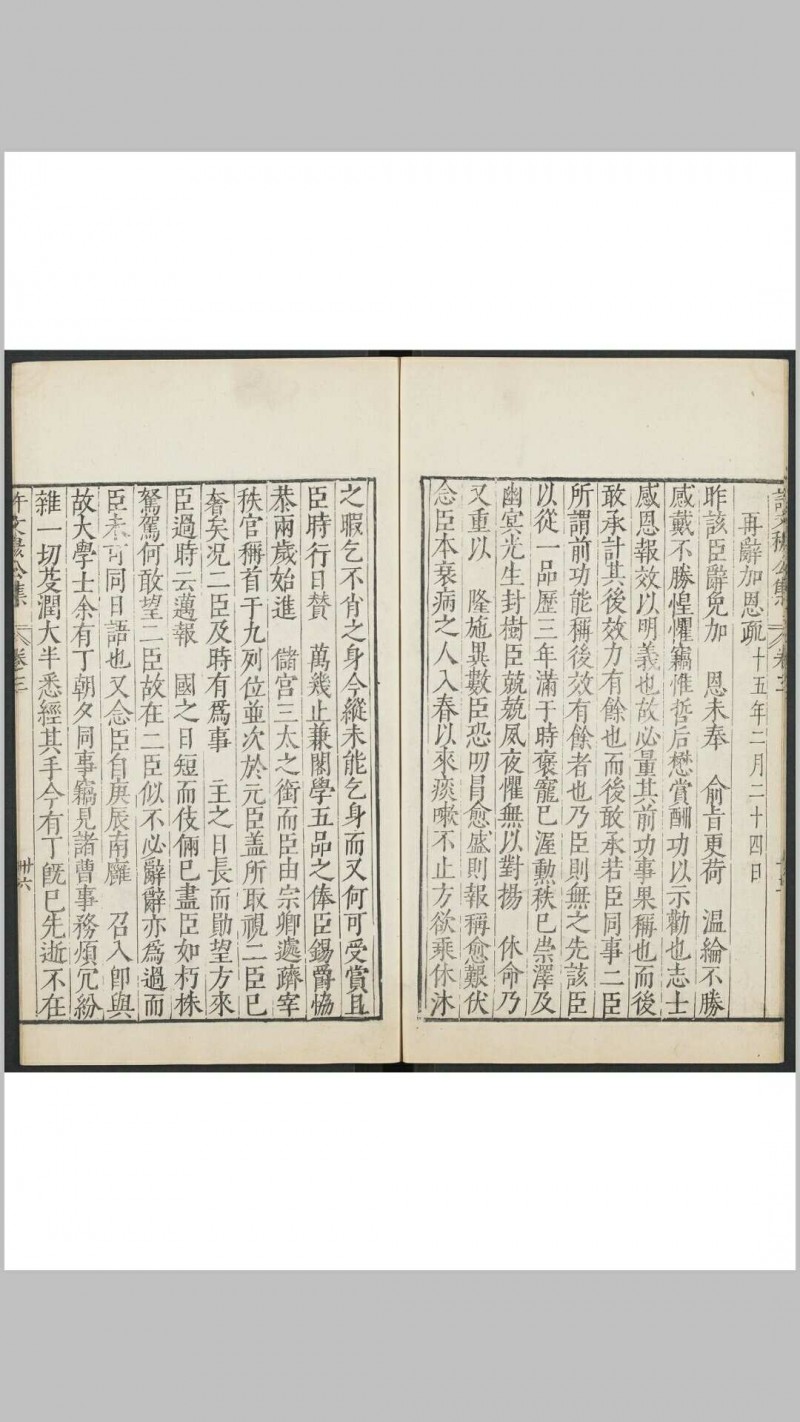 再辭加恩疏 十五年二月二十四日
昨該臣辭免加　恩未奉　俞旨更荷　温綸不勝
感戴不勝惶懼竊惟哲后懋賞酬功以示勸也志士
感恩報效以明義也故必量其前功事果稱也而後
敢承計其後效力有餘也而後敢承若臣同事二臣
所謂前功能稱後效有餘者也乃臣則無之先該臣
以從一品歷三年滿于時褒寵已渥勲秩已崇澤及
幽冥光生封樹臣兢兢夙夜懼無以對揚　休命乃
又重以　隆施異數臣恐叨冒愈盛則報稱愈艱伏
念臣本衰病之人入春以來痰嗽不止方欲乘休沐
之暇乞不肖之身今縱未能乞身而又何可受賞且
臣時行日贊　萬幾止兼閣學五品之俸臣錫爵恊
恭兩歲始進　儲宮三太之銜而臣由宗卿遽躋宰
秩官稱首于九列位並次於元臣盖所取視二臣已
奢矣况二臣及時有爲事　主之日長而勛望方來
臣過時云邁報　國之日短而伎倆已盡臣如朽株
駑駕何敢望二臣故在二臣似不必辭辭亦爲過而
臣未可同日語也又念臣自庚辰南廱　召入卽與
故大學士余有丁朝夕同事竊見諸曹事務煩冗紛
雜一切芟潤大半悉經其手今有丁旣已先逝不在
許文穆公集　卷三　卅六